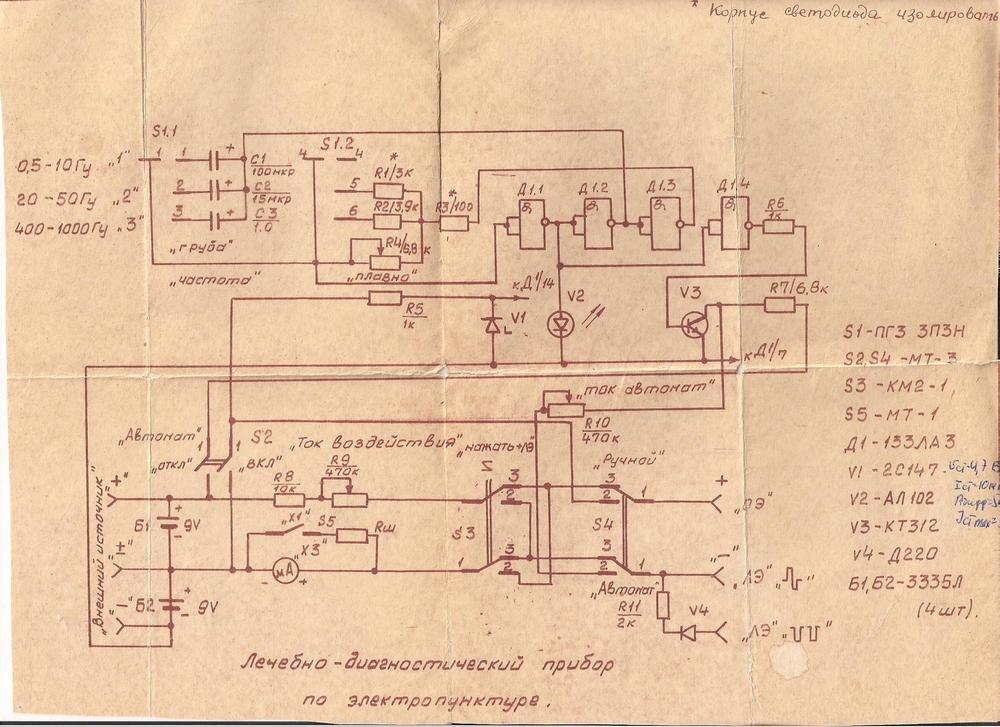 * Корпус светодиода изолировать
S1.1
S1.2
1 1 + С1
100мкр
4 4
0,5-10Гц „1"
20-50Гц „2"
400-1000Гц „3"
2 + С2
15мкр
3 + С3
1.0
„груба"
„частота"
*
5 R1/3к
6 R2/3,9к
R4/6,8к
„плавно"
*
R3/100
Д1.1
Д1.2
Д1.3
Д1.4
R6
1к
R5
1к
к Д1/14
V1
V2
V3
R7/6,8к
к Д1/7
„ток автомат"
R10
470к
„Автомат"
„откл"
1 1
S2
„ВКЛ"
„Ток воздействия"
„нажать+ЛЭ"
„Ручной"
R8
10к
R9
470к
„Внешний источник"
+
±
„-"
Б1 9V
Б2 9V
„X1" S5
„X3"
Rш
- мА +
S3
1 3 2
1 3 2
S4
3 2 1
3 2 1
+
„-"
„ЛЭ"
„Автомат"
R11
2к
V4
„ЛЭ"
S1-ПГ3 3П3Н
S2,S4 -МТ-3
S3 -КМ2-1
S5 -МТ-1
Д1-133ЛА3
V1 -2С147
V2 -АЛ102
V3 -КТ312
V4 -Д220
Б1,Б2-3335Л
(4шт).
Лечебно-диагностический прибор
по электропунктуре.